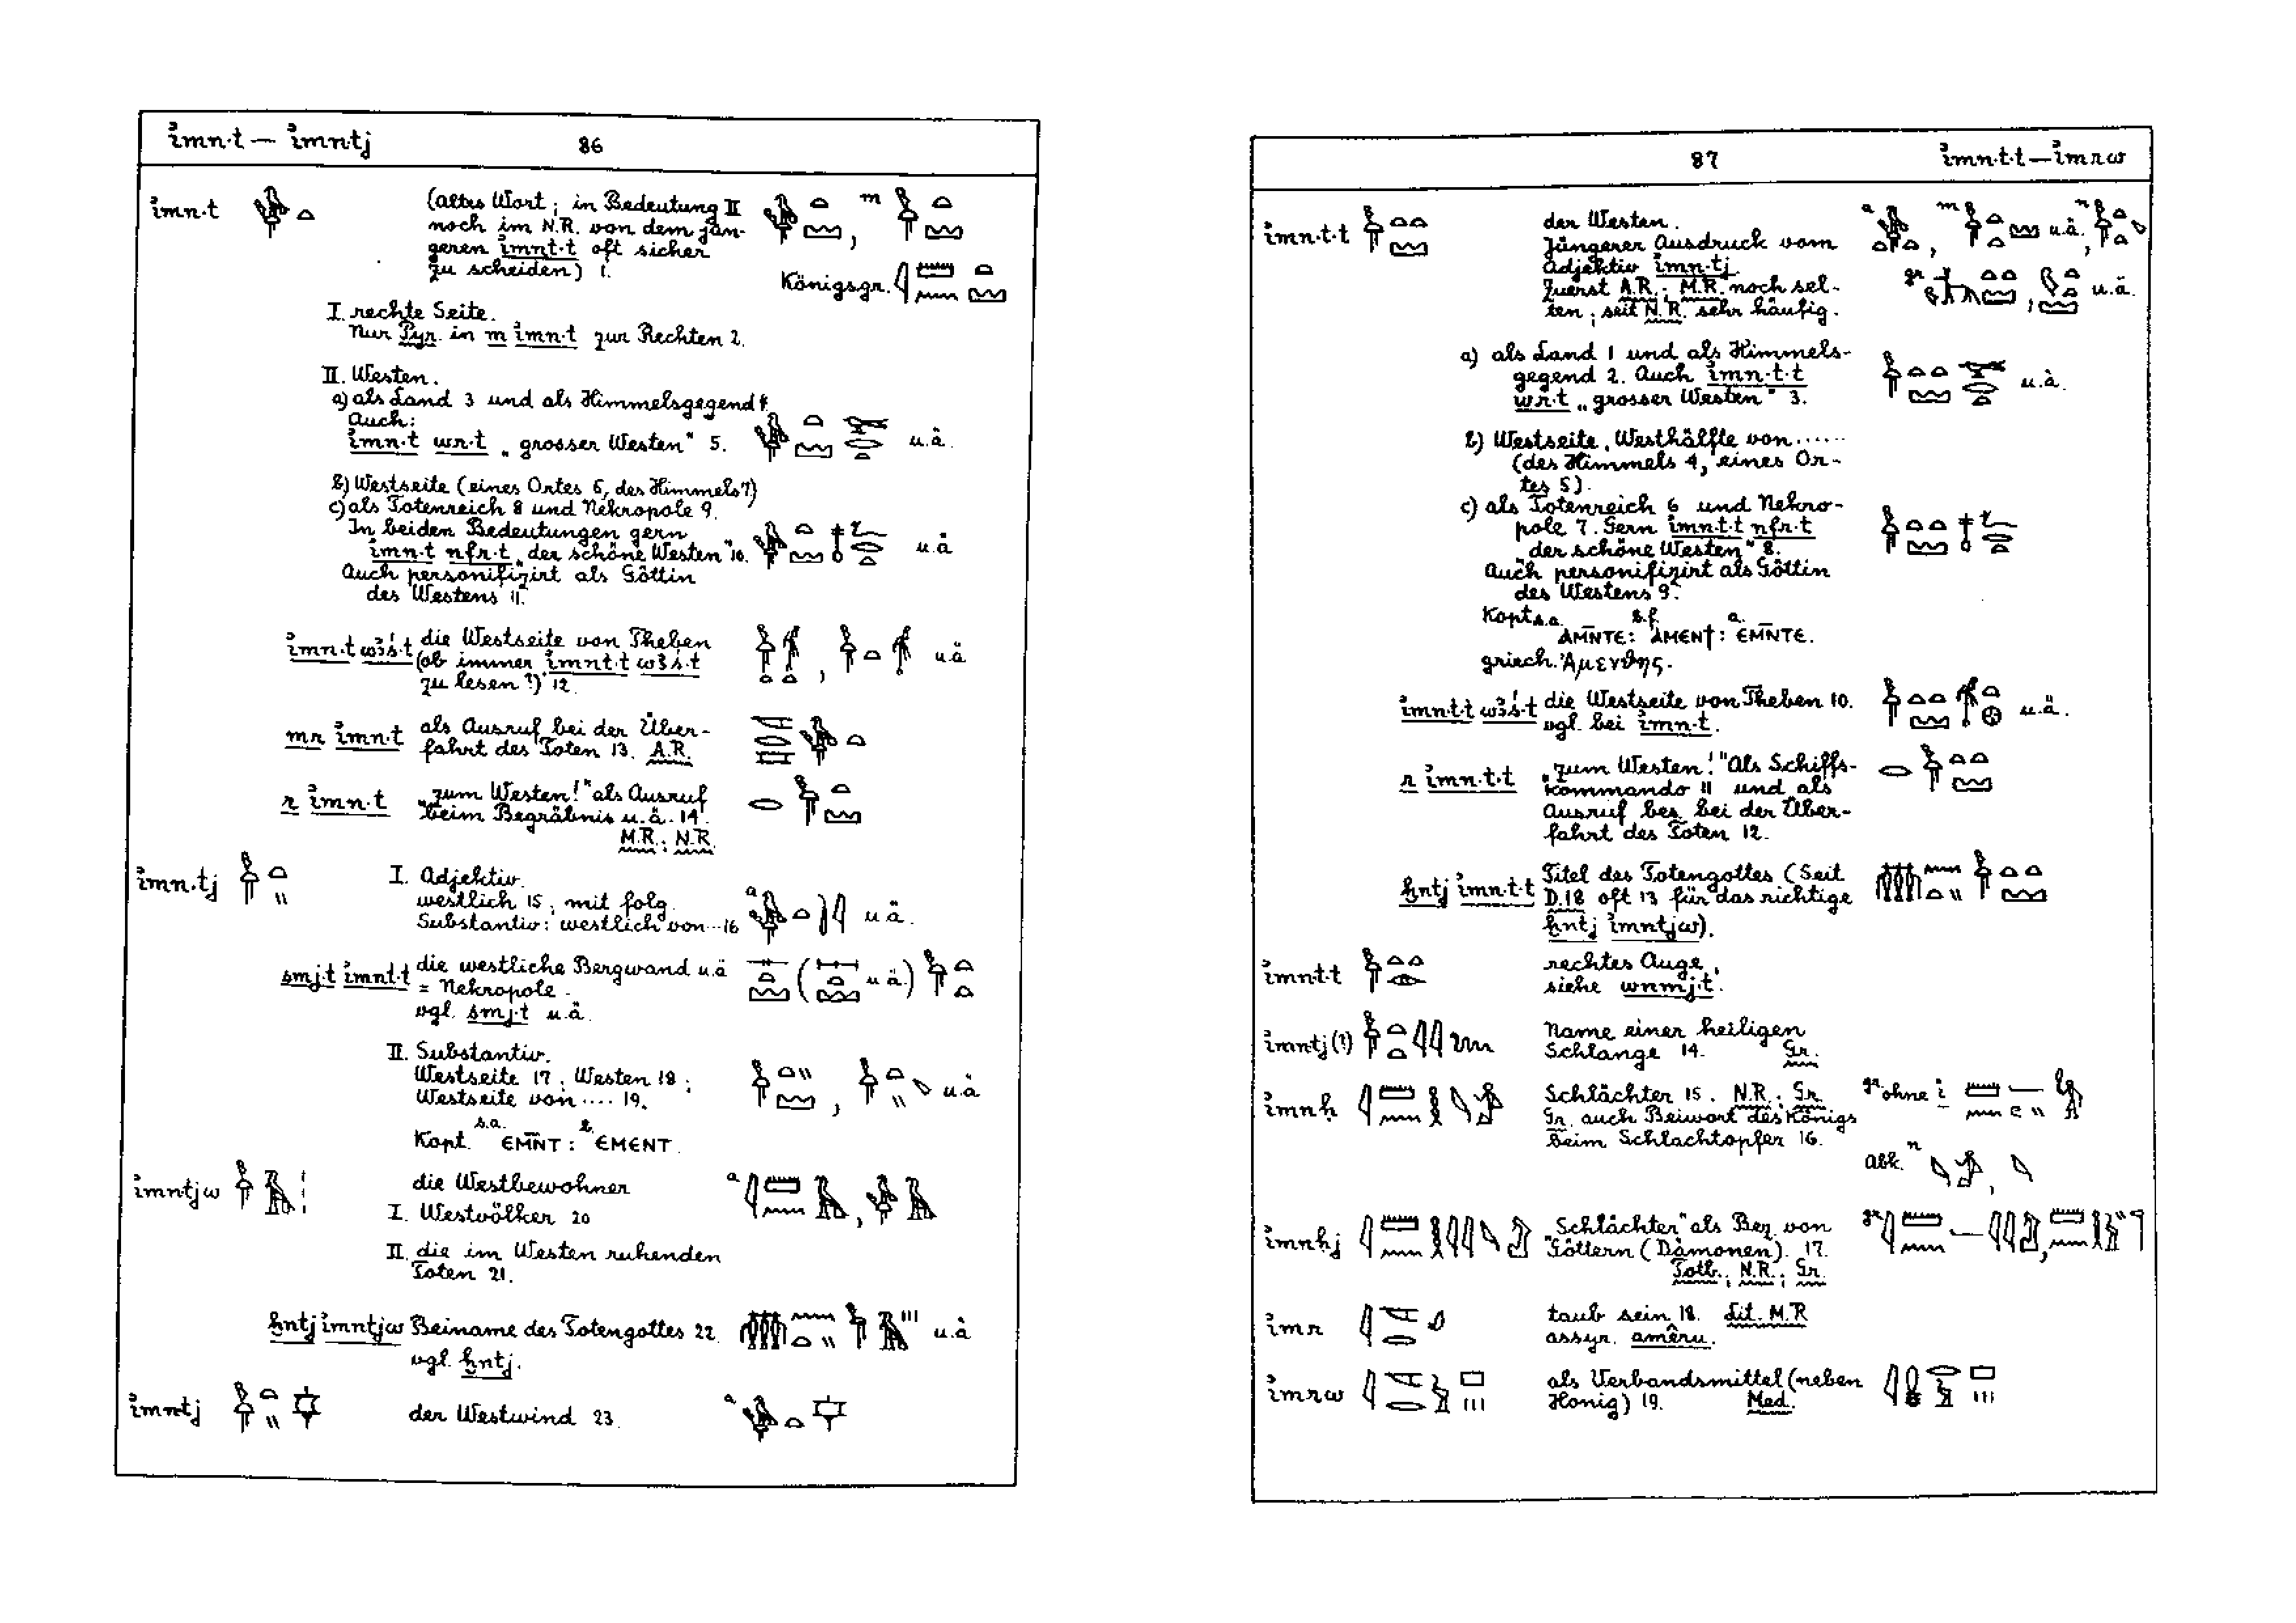 imn·t — imntj 86
imn·t
(altes Wort; in Bedeutung II
noch im N.R. von dem jün-
geren imnt·t oft sicher
zu scheiden) 1.
m
Königsgr.
I. rechte Seite.
Nur Pyr. in m imn·t zur Rechten 2.
II. Westen.
a) als Land 3 und als Himmelsgegend 4.
Auch:
imn·t wr·t „grosser Westen" 5. u.ä.
b) Westseite (eines Ortes 6, des Himmels 7)
c) als Totenreich 8 und Nekropole 9.
In beiden Bedeutungen gern
imn·t nfr·t „der schöne Westen" 10. u.ä
Auch personifizirt als Göttin
des Westens 11.
imn·t wꜣś·t die Westseite von Theben
(ob immer imnt·t wꜣś·t u.ä
zu lesen?) 12.
mr imn·t als Ausruf bei der Über-
fahrt des Toten 13. A.R.
r imn·t „zum Westen!" als Ausruf
beim Begräbnis u.ä. 14.
M.R.; N.R.
imn·tj I. Adjektiv.
westlich 15; mit folg. a
Substantiv: westlich von ··· 16 u.ä.
smj·t imnt·t die westliche Bergwand u.ä ( u.ä.)
= Nekropole.
vgl. smj·t u.ä.
II. Substantiv.
Westseite 17; Westen 18;
Westseite von ···· 19. u.ä
Kopt. s.a. ⲈⲘⲚ̄Ⲧ : b. ⲈⲘⲈⲚⲦ.
imntjw die Westbewohner a
I. Westvölker 20
II. die im Westen ruhenden
Toten 21.
ḫntj imntjw Beiname des Totengottes 22. u.ä
vgl. ḫntj.
imntj der Westwind 23. a
87 imn·t·t — imrw
imn·t·t der Westen. a m u.ä. n
Jüngerer Ausdruck vom
Adjektiv imn·tj.
Zuerst A.R.; M.R. noch sel- gr u.ä.
ten; seit N.R. sehr häufig.
a) als Land 1 und als Himmels-
gegend 2. Auch imn·t·t u.ä.
wr·t „grosser Westen" 3.
b) Westseite, Westhälfte von ······
(des Himmels 4, eines Or-
tes 5).
c) als Totenreich 6 und Nekro-
pole 7. Gern imn·t·t nfr·t
der schöne Westen" 8.
Auch personifizirt als Göttin
des Westens 9.
Kopt. s.a. ⲀⲘⲚ̄ⲦⲈ : b.f. ⲀⲘⲈⲚϮ : a. ⲈⲘⲚ̄ⲦⲈ.
griech. Ἀμενθης.
imnt·t wꜣś·t die Westseite von Theben 10. u.ä.
vgl. bei imn·t.
r imn·t·t „zum Westen!" Als Schiffs-
kommando 11 und als
Ausruf bes. bei der Über-
fahrt des Toten 12.
ḫntj imn·t·t Titel des Totengottes (Seit
D.18 oft 13 für das richtige
ḫntj imntjw).
imnt·t rechtes Auge,
siehe wnmj·t.
imntj(?) Name einer heiligen
Schlange 14. Gr.
imnḥ Schlächter 15. N.R.; Gr. gr ohne i
Gr. auch Beiwort des Königs
beim Schlachtopfer 16.
Abk. n
imnḥj „Schlächter" als Bez. von gr
Göttern (Dämonen). 17.
Totb.; N.R.; Gr.
imr taub sein 18. Lit. M.R
assyr. amêru.
imrw als Verbandsmittel (neben
Honig) 19. Med.